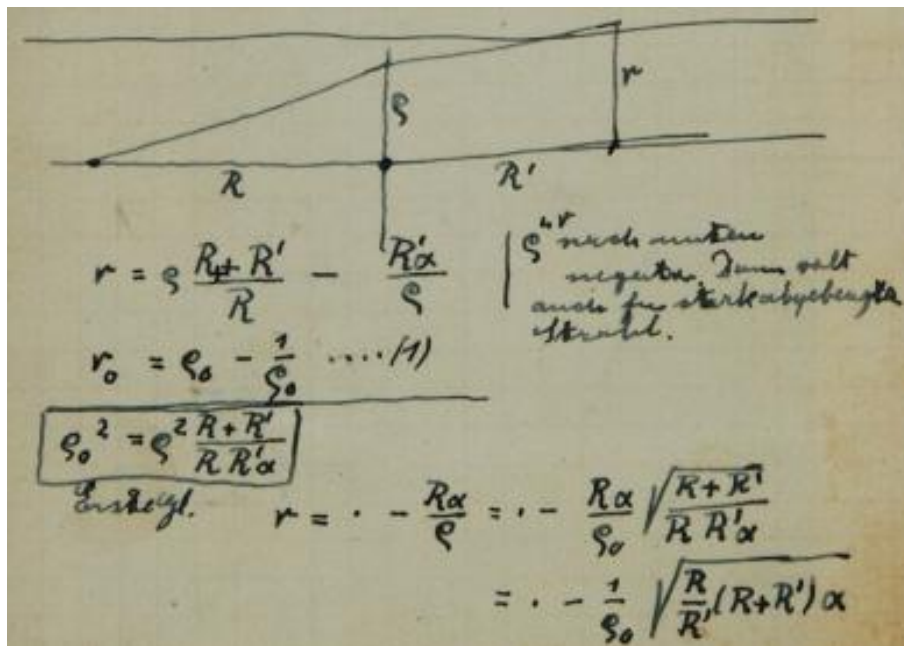 r
ρ
R R'
r = ρ (R + R')/R - R'α/ρ
ρ, r nach unten
negativ. Dann gilt
auch für stark abgebeugten
Strahl.
r₀ = ρ₀ - 1/ρ₀ .... (1)
ρ₀² = ρ² (R + R')/(R R'α)
r = · - Rα/ρ = · - Rα/ρ₀ √((R + R')/(R R'α))
= · - 1/ρ₀ √(R/R' (R+R') α)